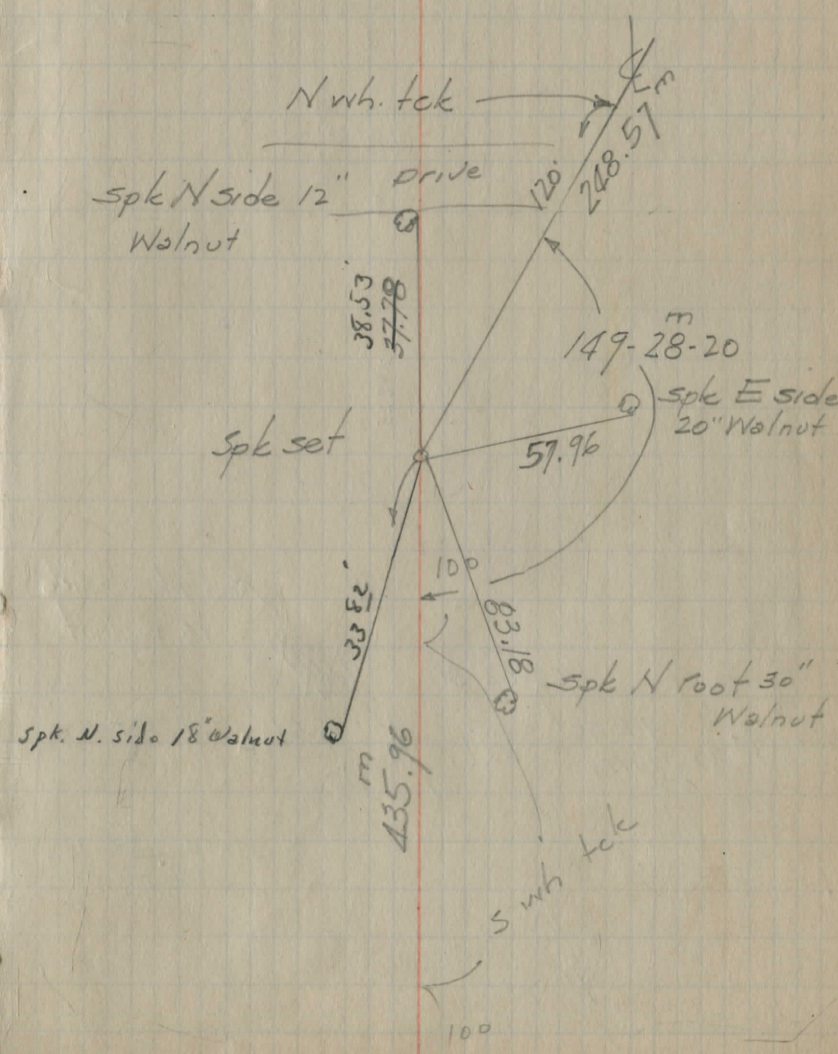 N wh. tck
120'
248.57
Drive
Spk N side 12"
Walnut
38.53'
37.78
m
149-28-20
Spk E side
20" Walnut
57.96
Spk set
100
33.82'
83.18
Spk N root 30"
Walnut
spk. N. side 18" Walnut
m
435.96
S wh tck
100